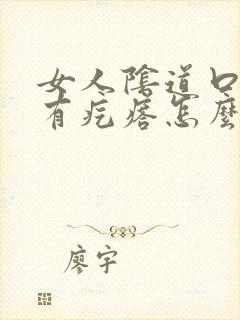 女人陰道口
有疙瘩怎麼
廖宇